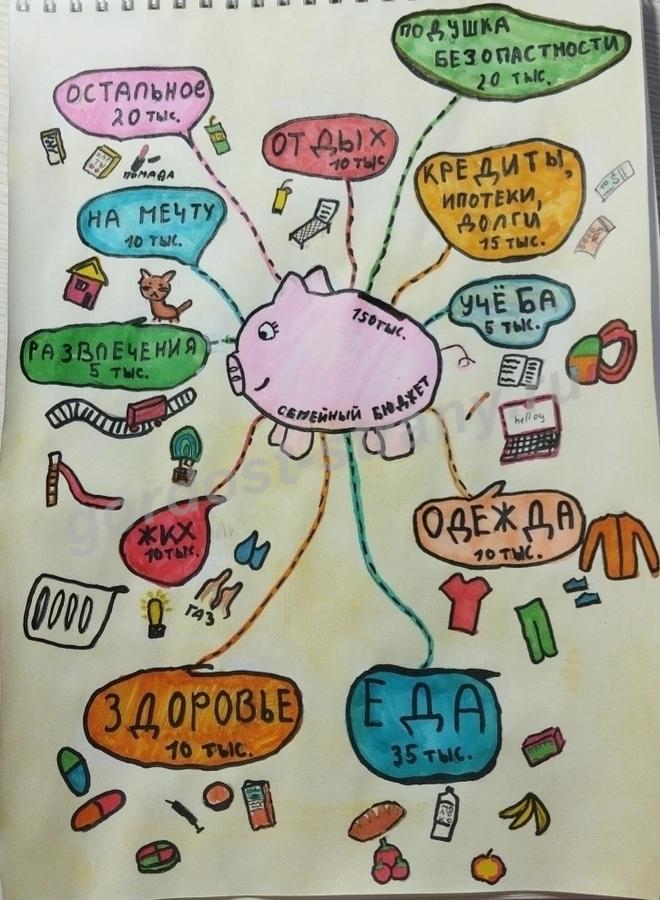 ПОДУШКА
БЕЗОПАСТНОСТИ
20 ТЫС.
ОСТАЛЬНОЕ
20 ТЫС.
ПОМАДА
ОТДЫХ
10 ТЫС
КРЕДИТЫ,
ИПОТЕКИ,
ДОЛГИ
15 ТЫС.
НА МЕЧТУ
10 ТЫС.
УЧЁБА
5 ТЫС.
150 ТЫС.
СЕМЕЙНЫЙ БЮДЖЕТ
РАЗВЛЕЧЕНИЯ
5 ТЫС.
hello y
ОДЕЖДА
10 ТЫС.
ЖКХ
10 ТЫС.
ГАЗ
ЗДОРОВЬЕ
10 ТЫС.
ЕДА
35 ТЫС.
gordost-strany.ru